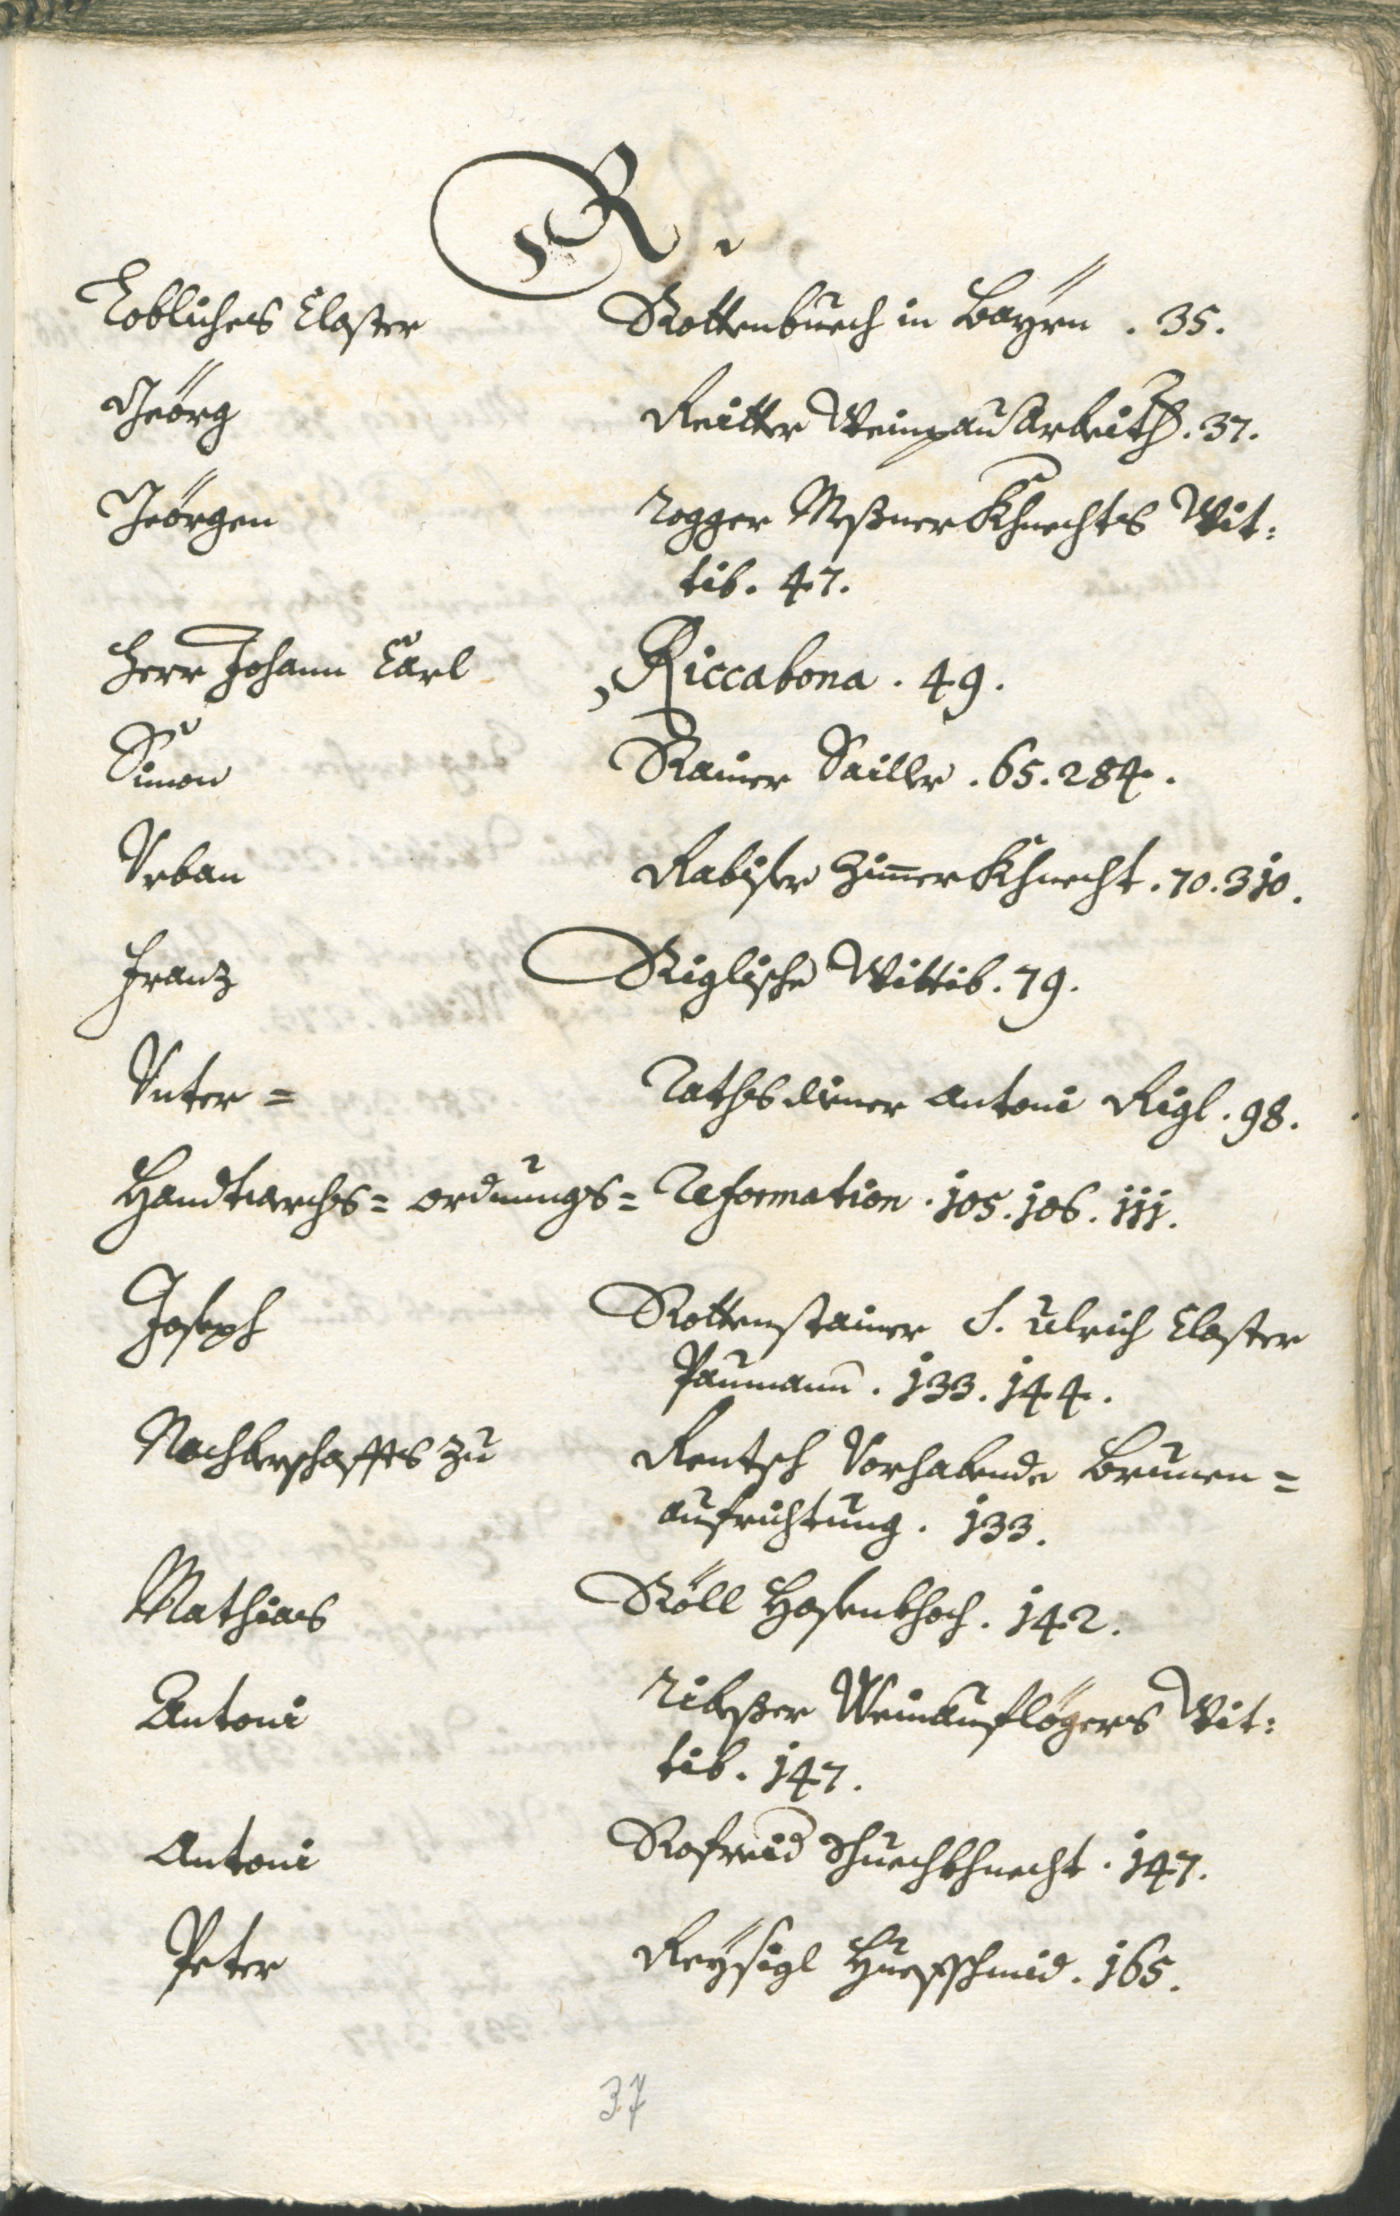 R.
Lobliches Closter Rottenbuech in Bayrn . 35.
Jeörg Reitter Weinpau Arbeith . 37.
Jeörgen rogger Mesner Khnechts Wit:
tib . 47.
Herr Johann Carl Riccabona . 49.
Simon Rainer Sailler . 65 . 284 .
Urban Rabiser Zimerkhnecht . 70 . 310 .
Franz Riglische Wittib . 79 .
Unter = Rathsdiener Antoni Rigl . 98 .
Handtwerchs = ordnungs = Reformation . 105 . 106 . 111 .
Joseph Rottenstainer S. Ulrich Closter
Paumann . 133 . 144 .
Nachberschaffts zu Rentsch Vorhabende Brunen =
aufrichtung . 133 .
Mathias Röll Hofenkhoch . 142 .
Antoni ribeser Weinauflögers Wit:
tib . 147 .
Antoni Rofreid Schuechkhnecht . 147 .
Peter Reÿsigl Huefschmid . 165 .
37